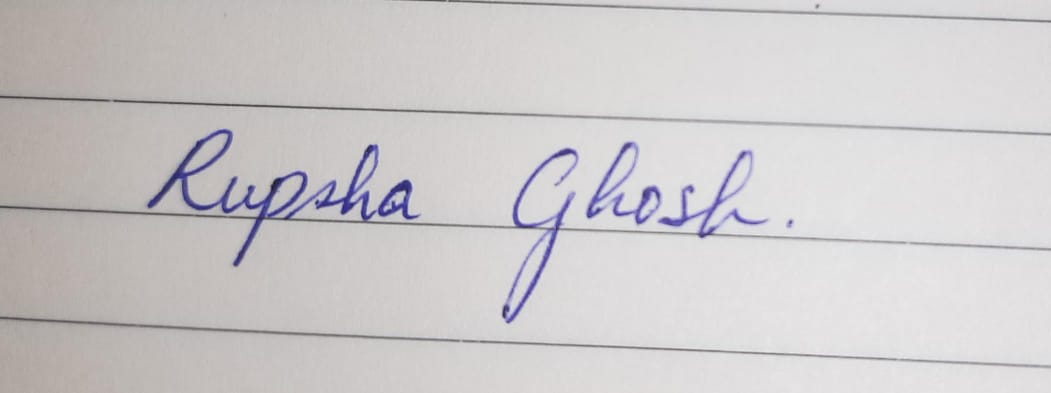 Rupsha Ghosh.